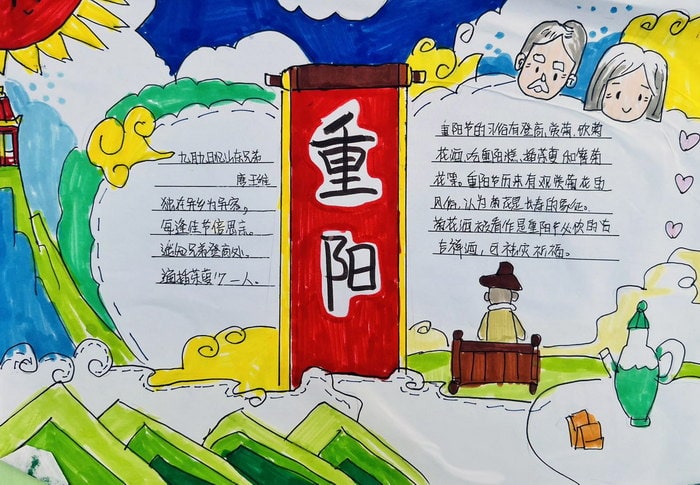 九月九日忆山东兄弟
唐 王维
独在异乡为异客,
每逢佳节倍思亲。
遥知兄弟登高处,
遍插茱萸少一人。
重阳
重阳节的习俗有登高、赏菊、饮菊
花酒、吃重阳糕、插茱萸和簪菊
花等。重阳节历来有观赏菊花的
风俗,认为菊花是长寿的象征。
菊花酒被看作是重阳节必饮的
吉祥酒,可祛灾祈福。